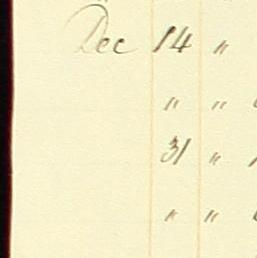 Dec 14 "
" "
31 "
" "